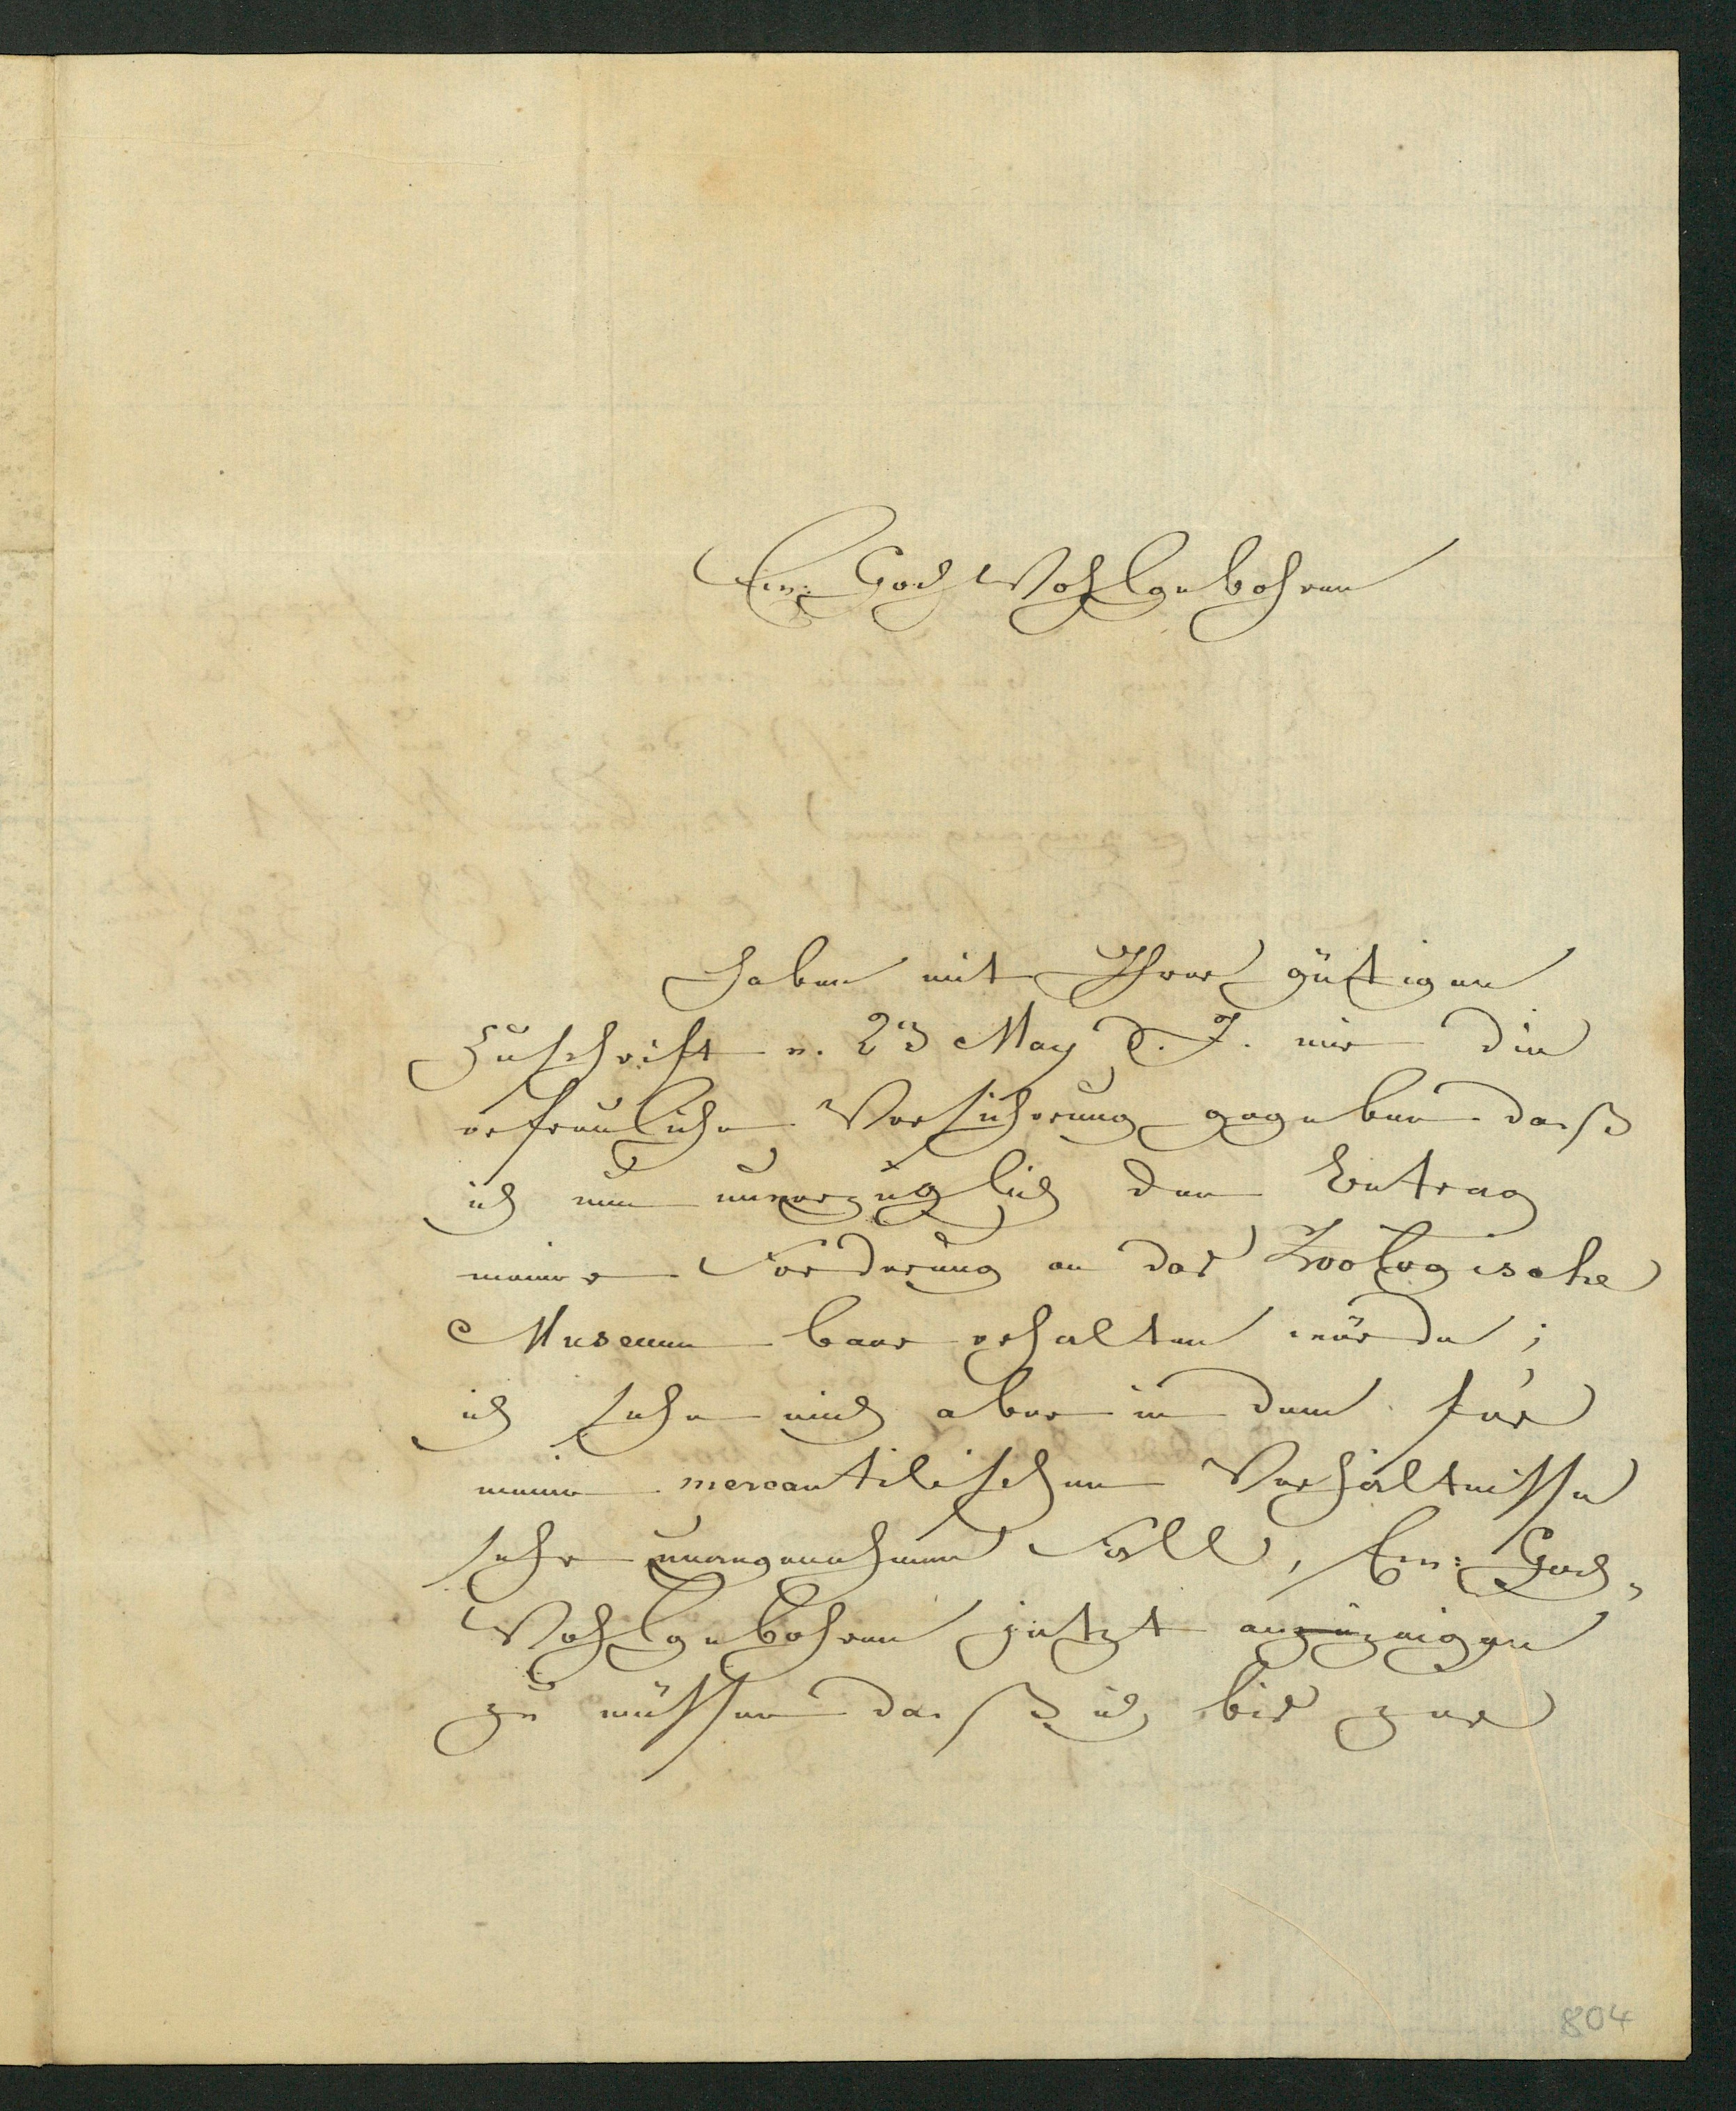 Ew: HochWohlgebohren
Haben mit Ihrer gütigen
Zuschrift v. 23 May d. J. mir die
erfreuliche Versicherung gegeben daß
ich nun unverzüglich den Betrag
meiner Forderung an das Zoologische
Museum baar erhalten würde;
ich sehe mich aber in dem für
meine mercantilischen Verhältnisse
sehr unangenehmen Fall, Ew: Hoch„
Wohlgebohren jetzt anzuzeigen
zu müssen daß ich bis zur
804